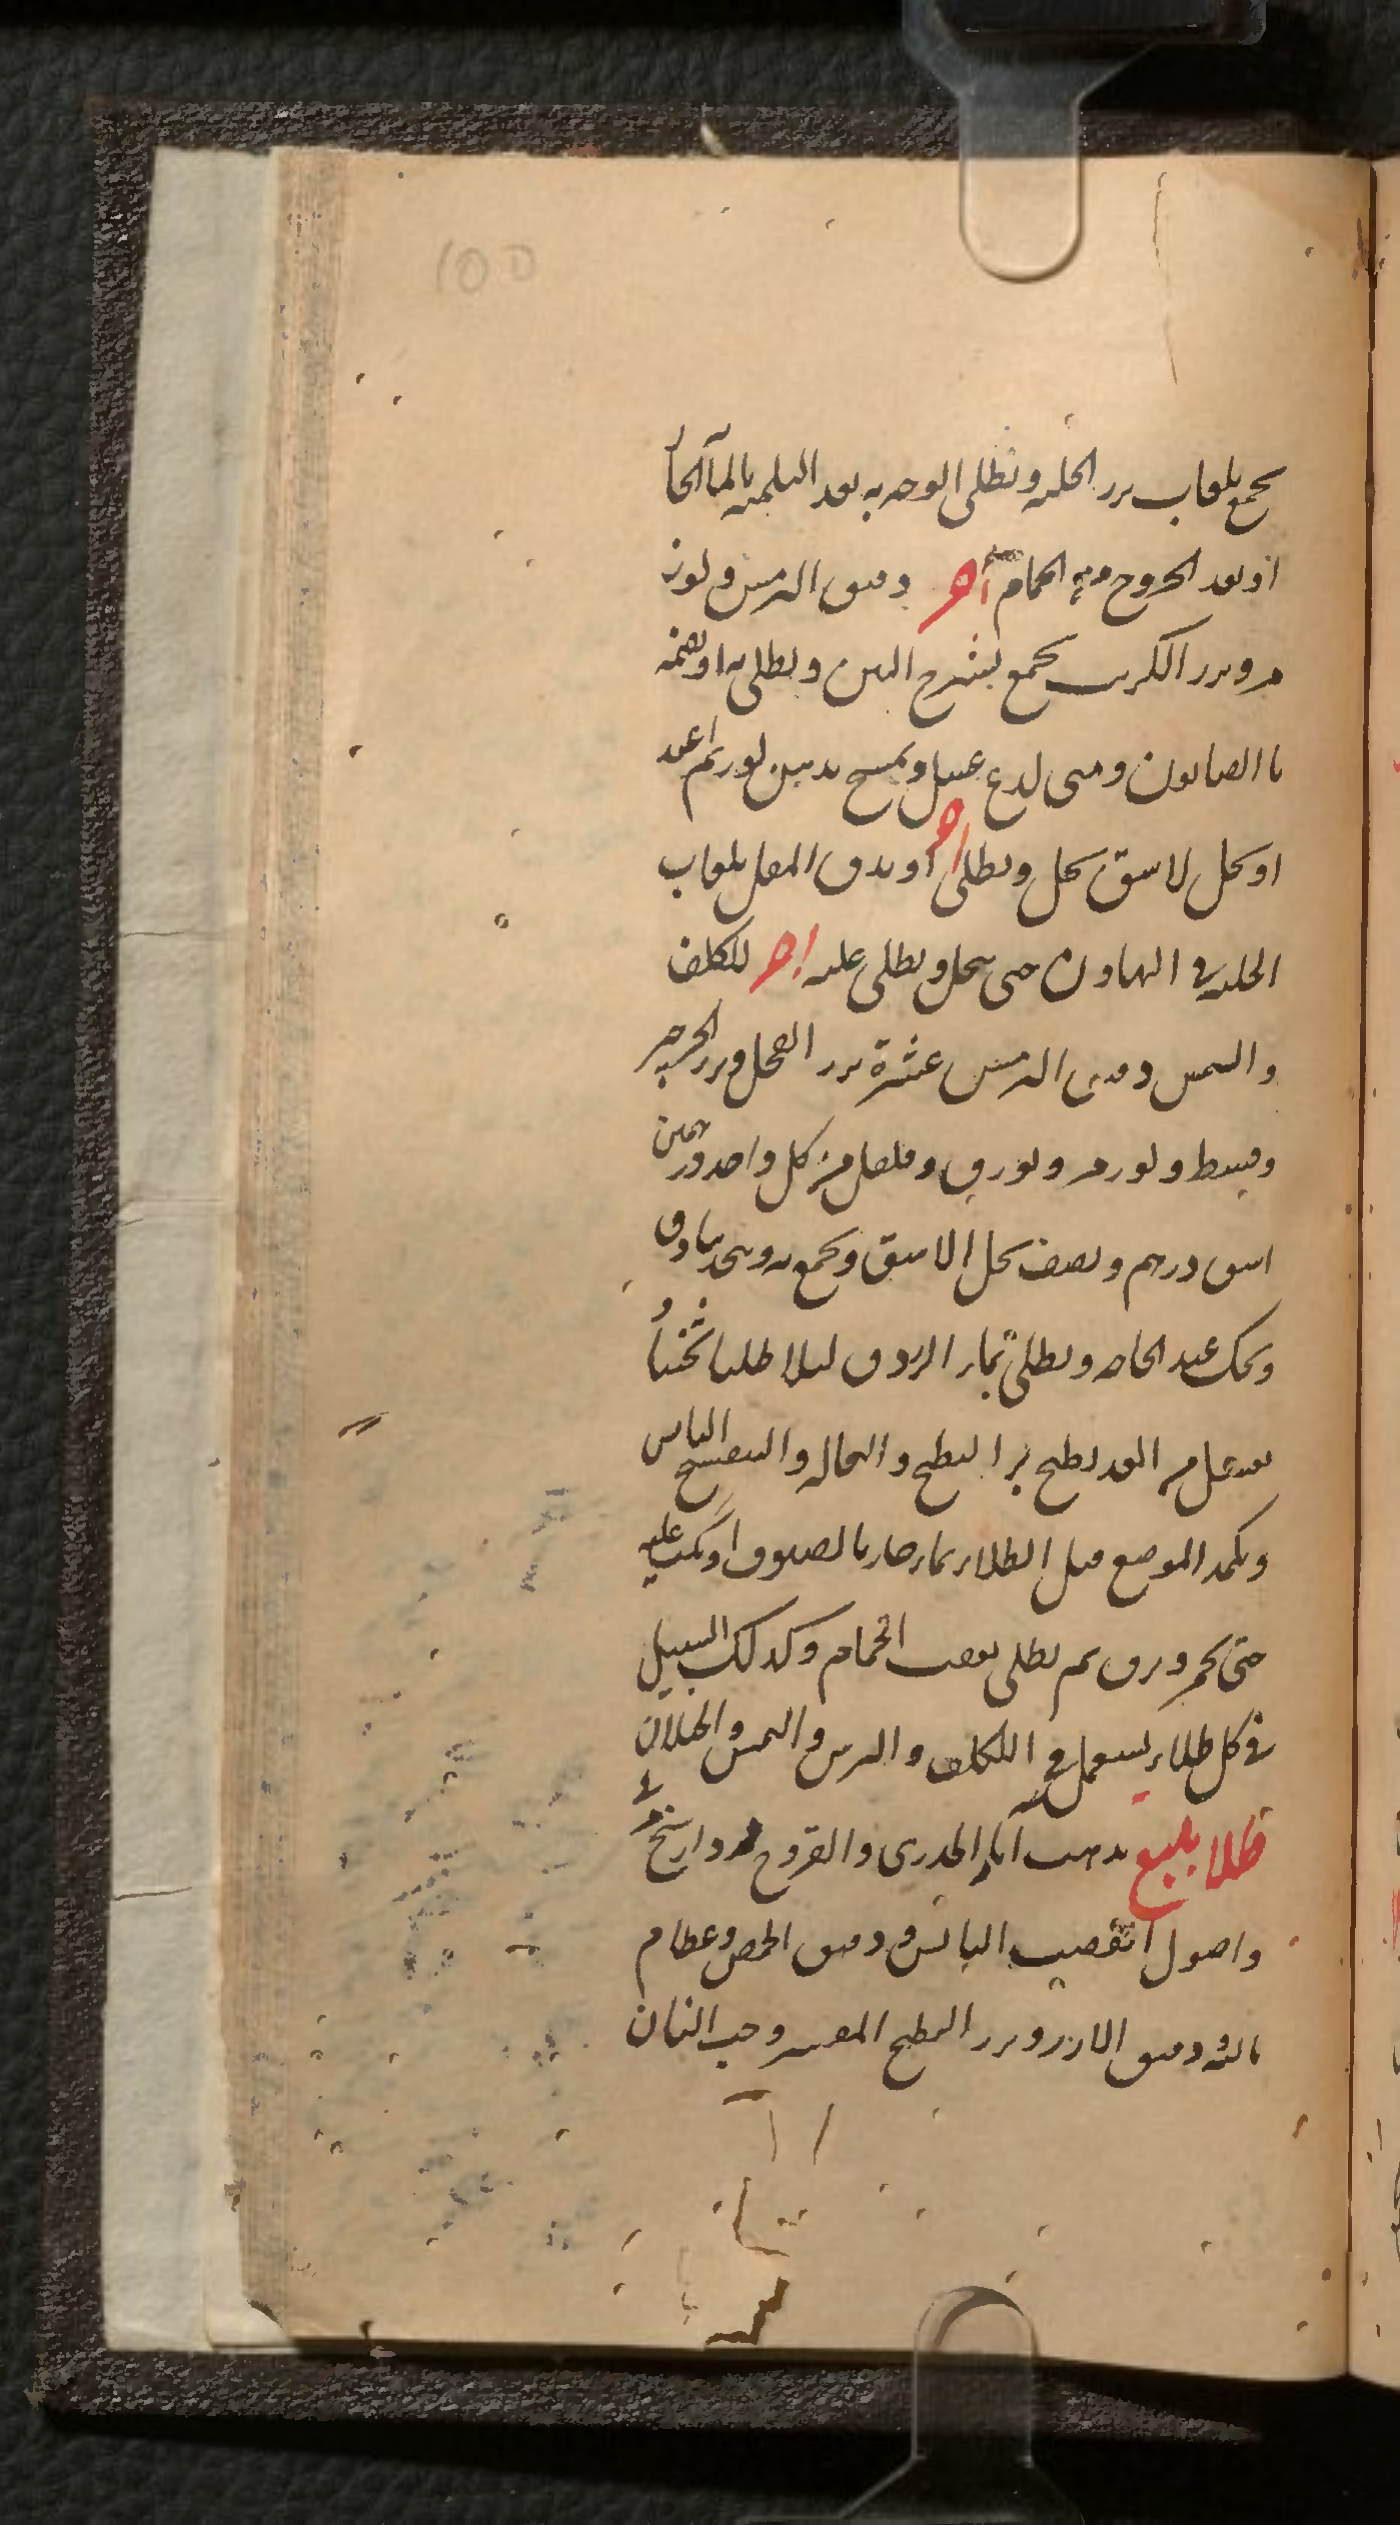 100
يجمع بلعاب بزر الحلبه ويطلى الوجه به بعد التلميه بالمآ الحآ
او بعد الخروج من الحمام آخر دقيق الترمس ولوز
مر وبزر الكرنب يجمع بشيرج التين ويطلى به او يضمه
بالصابون ومتى لدغ غسل ويمسح بدهن لوز ثم اعيد
او يحل لاشق بخل ويطلى آخر او يدق المقل بلعاب
الحلبه في الهاون حتى ينحل ويطلى عليه اخر للكلف
والنمش دقيق الترمس عشرة بزر الفجل وبزر الجرجير
وقسط ولوز مر وبورق وفلفل من كل واحد درهمين
اشق درهم ونصف يحل الاشق ويجمع به ويتخذ بنادق
ويحك عند الحاجه ويطلى بماء الزردق ليلا طليا ثخينا و
يغسل من الغد بطبيخ بزر البطيخ والنخاله والبنفسج اليابس
ويكمد الموضع قبل الطلاء بماء حار بالصوف او يكب عليه
حتى يحمر ويرق ثم يطلى بعقب الحمام وكذلك السبيل
في كل طلاء يستعمل في الكلف والبرش والنمش والخيلان
طلا بليغ يذهب آثار الجدرى والقروح مرداسنج
واصول القصب اليابس ودقيق الحمص وعظام
باليه ودقيق الارز وبزر البطيخ المقشر وحب البان